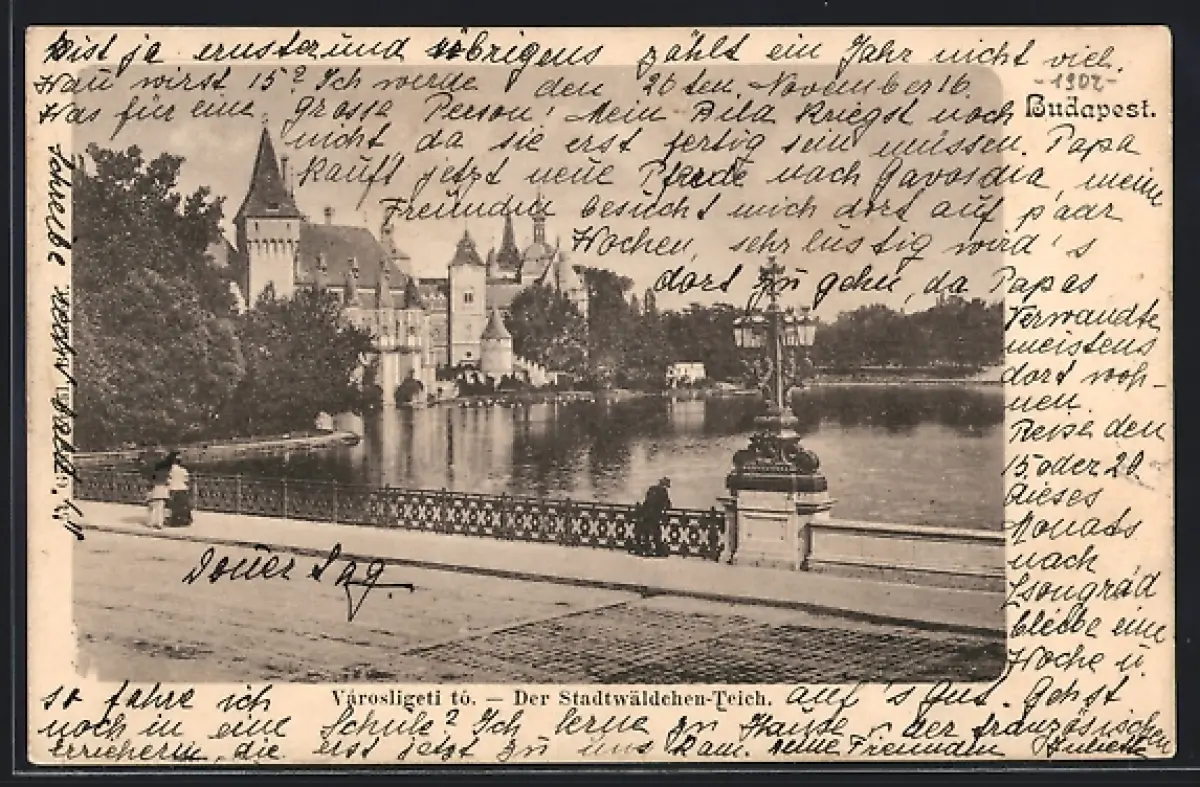 bist ja ernster und übrigens zählt ein Jahr nicht viel.
wirst 15? Ich werde den 26ten November 16.
Was für eine grosse Person! Mein Bild kriegst noch
nicht da sie erst fertig sein müssen. Papa
kauft jetzt neue Pferde nach Gavosdia, meine
Freundin besucht mich dort auf paar
Wochen, sehr lustig wird's
dort zu gehen, da Papas
Verwandte
meistens
dort woh-
nen.
Reise den
15. oder 20.
dieses
Monats
nach
Csongrád
bleibe eine
Woche u.
so fahre ich auf's Gut. Gehst
noch in eine Schule? Ich lerne zu Hause, der französischen
Erzieherin, die erst jetzt zu uns kam. Deine Freundin Juliette
-1902-
Budapest.
Schreibe sofort
Városligeti tó. — Der Stadtwäldchen-Teich.